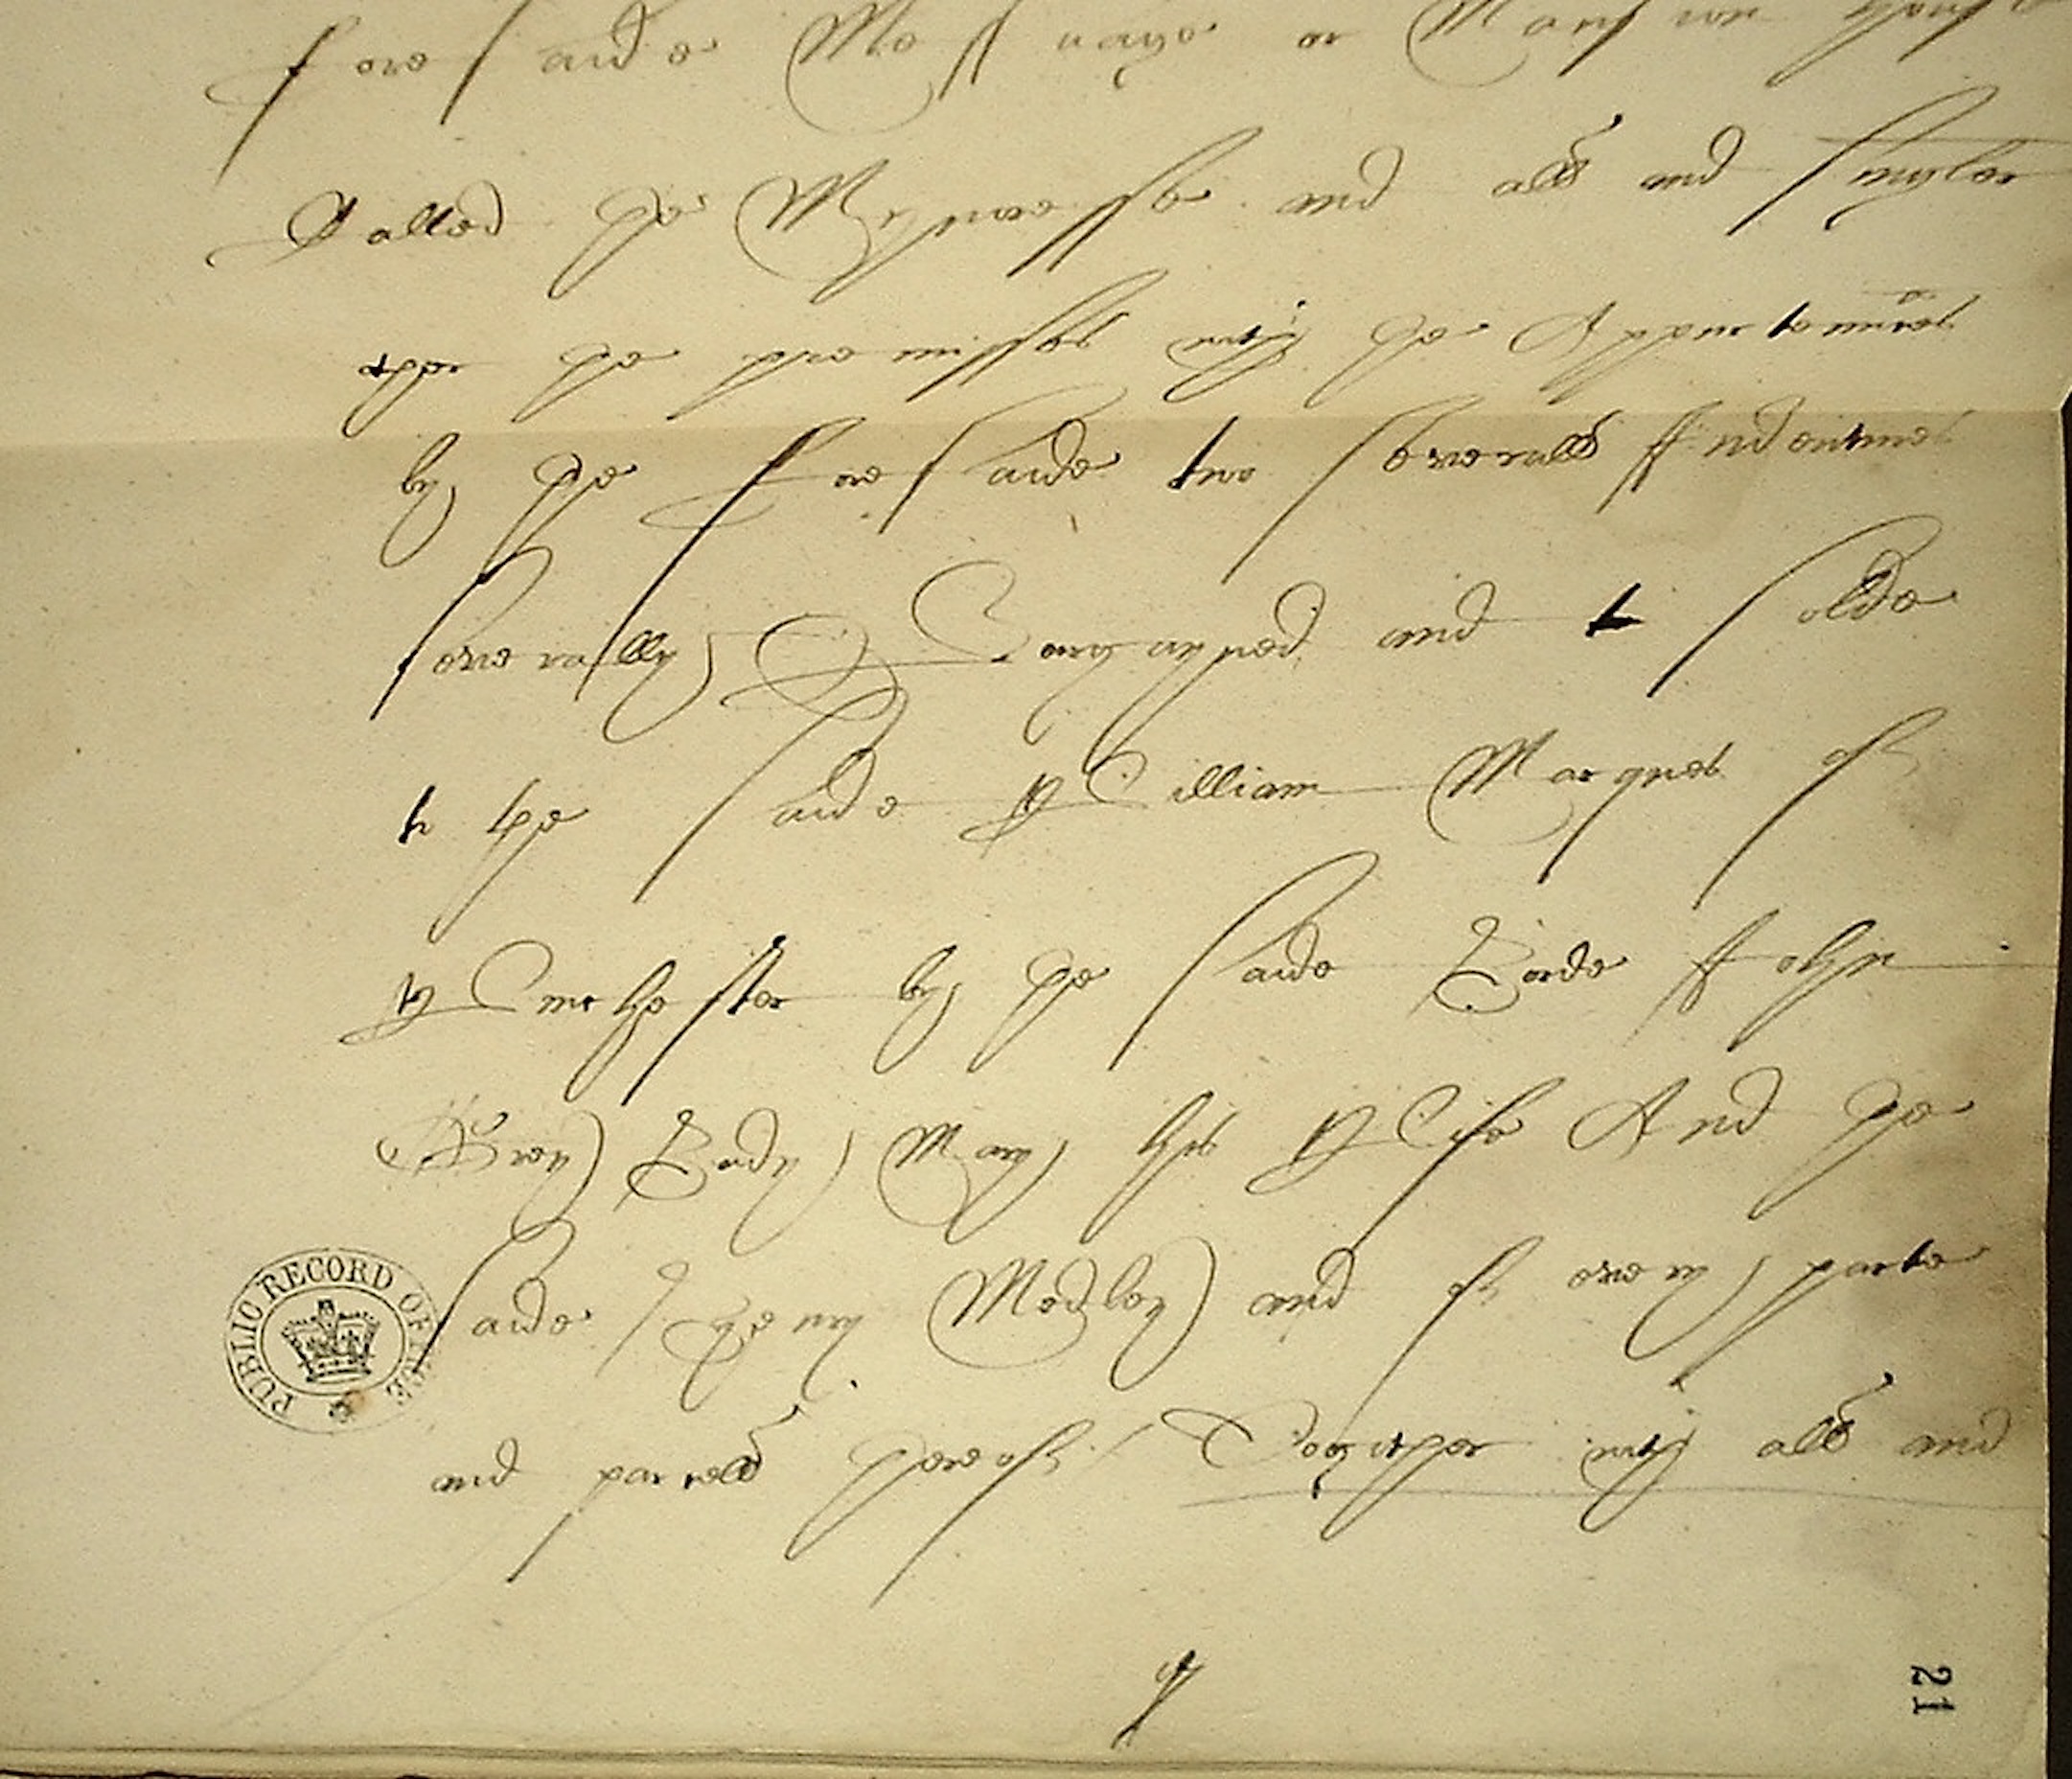 foresaide Messuage or Mansion house
Called the Mynnesse and all and Singler
other the premisses with the Appurtennces
by the foresaide two severall Indentures
severally Bargayned and solde
to the saide William Marques of
Winchester by the saide Lorde John
Grey Lady Mary his Wife And the
saide Henry Medley and of every parte
and parcell thereof Together with all and
PUBLIC RECORD OFFICE
21